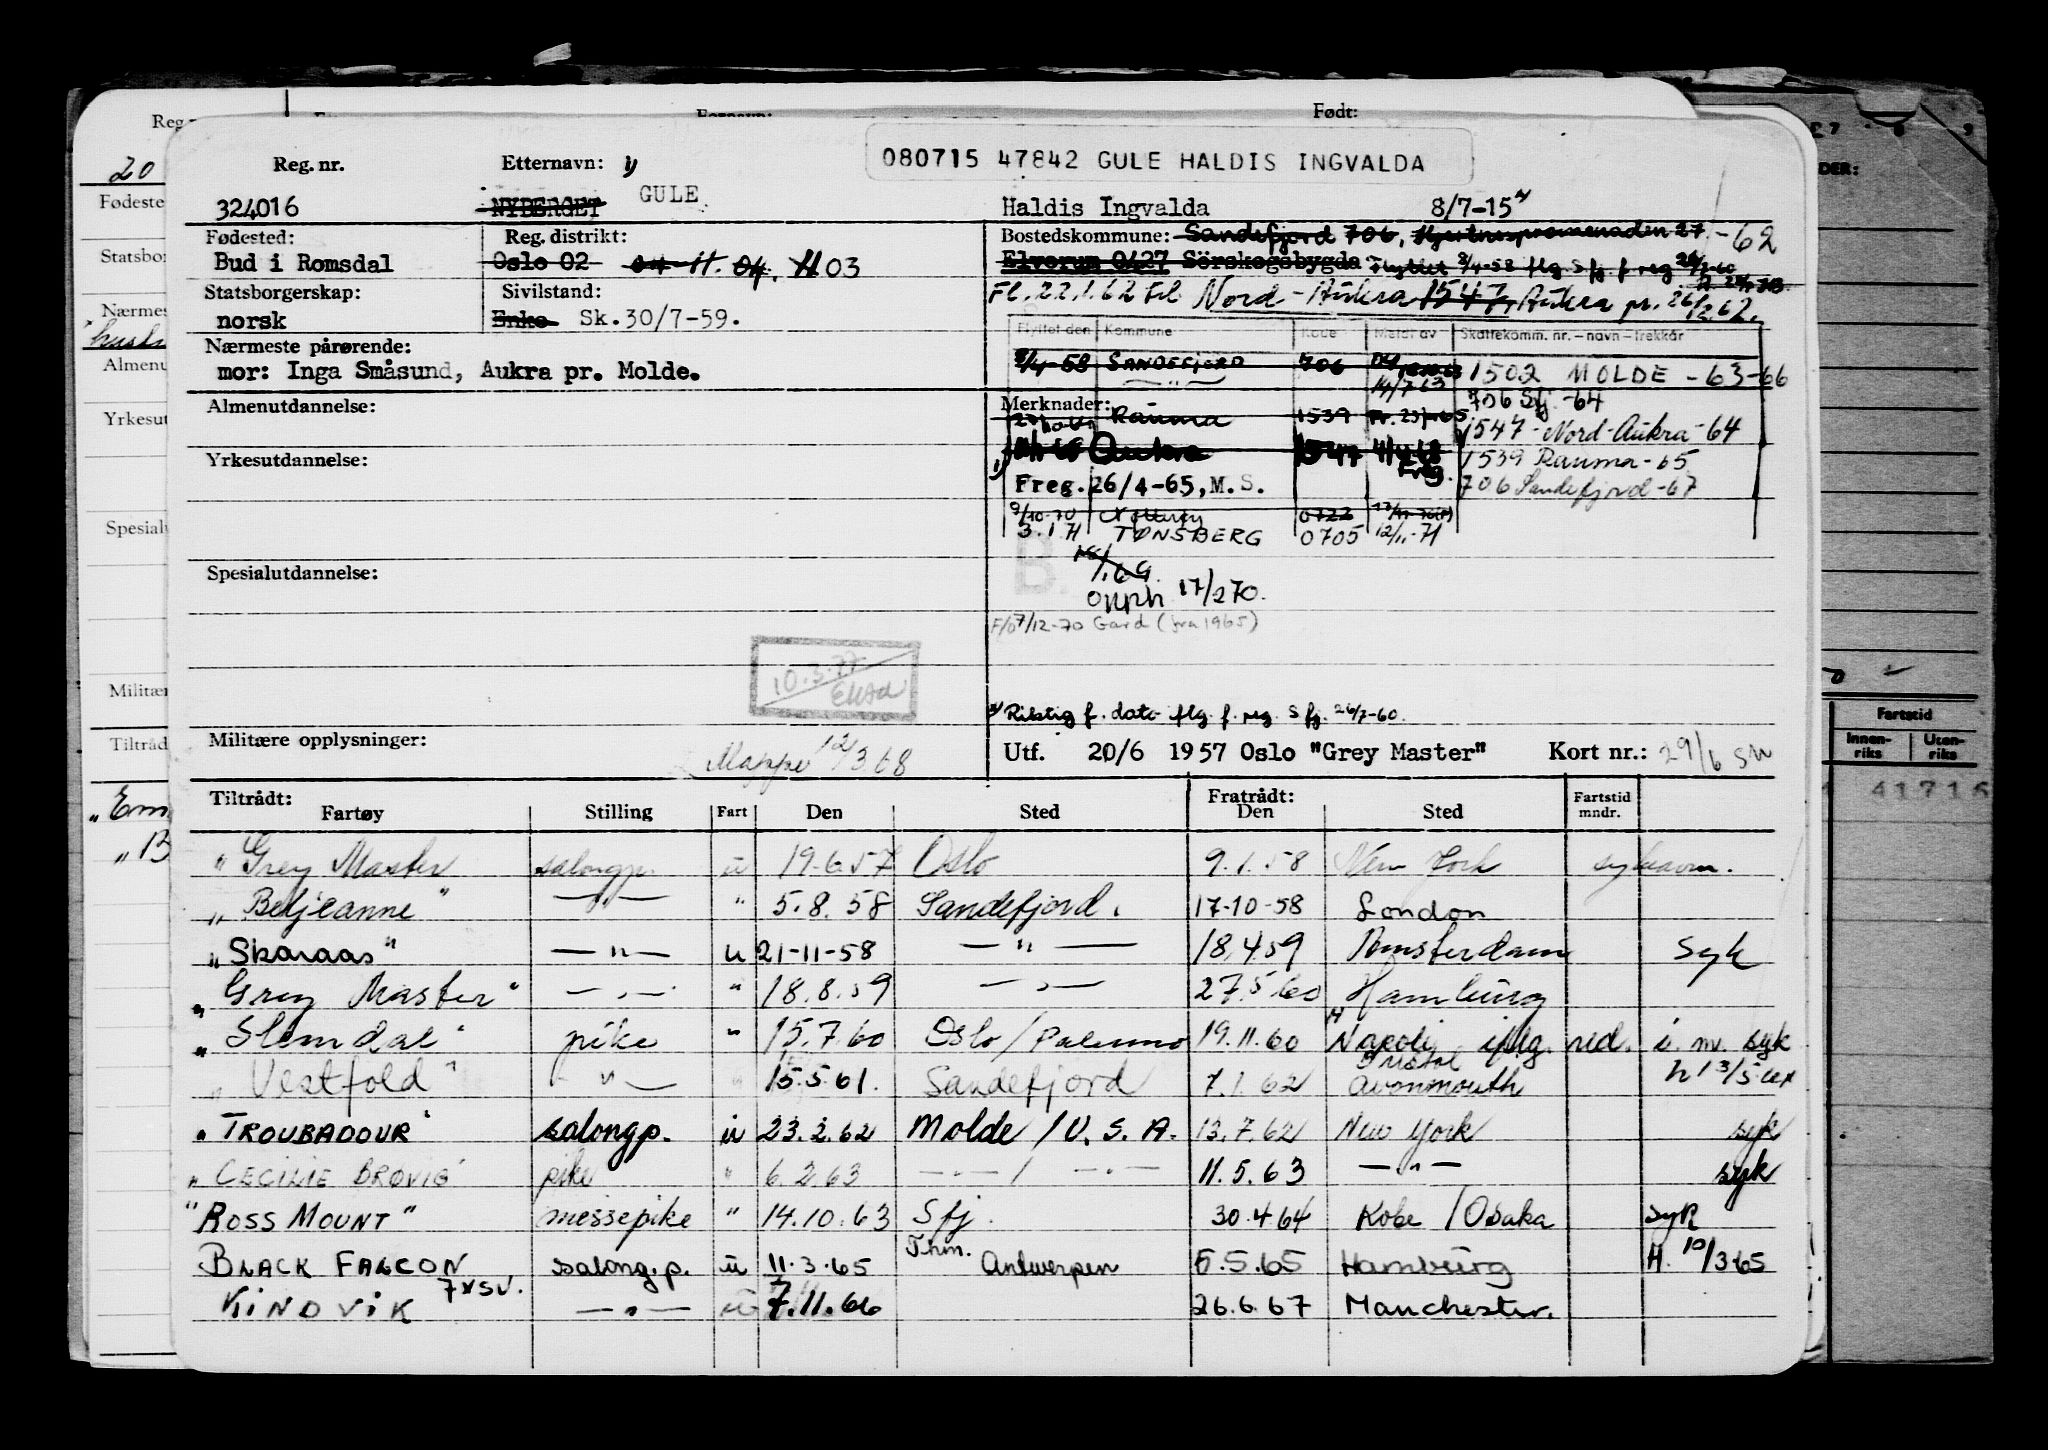 080715 47842 GULE HALDIS INGVALDA
Reg. nr. Etternavn: 1) Født:
324016 NYBERGET GULE Haldis Ingvalda 8/7-15
Fødested: Reg. distrikt: Bostedskommune: Sandefjord 706, Hjertnespromenaden 27 -62
Bud i Romsdal Oslo 02 04. 1103 Elverum 0427 Sörskogsbygda Flyttet 8/4-58 flg. Sfj. f. reg.
Statsborgerskap: Sivilstand: Fl. 22.1.62 til Nord-Aukra 1547, Aukra pr. 26/2.62.
norsk Enke Sk.30/7-59.
Nærmeste pårørende: Flyttet den Kommune Kode Meldt av Skattekomm. nr. – navn – trekkår
mor: Inga Småsund, Aukra pr. Molde. 8/4-58 SANDEFJORD 706 1502 MOLDE -63-66
14/7 63 706 Sfj. -64
Almenutdannelse: Merknader: Rauma 1539
1547 - Nord-Aukra -64
Aukra 1547
Yrkesutdannelse: 1) Freg. 1539 Rauma -65
Freg. 26/4-65, M.S. 706 Sandefjord -67
9/10-70 Nøtterøy 0722
3.1.71 TØNSBERG 0705 12/11-71
Spesialutdannelse:
Opph 17/270.
F/07/12-70 Gard (fra 1965)
10.3.77
Riktig f. dato flg. f. reg. Sfj. 26/7-60.
Militære opplysninger: Mappe 12/3 68 Utf. 20/6 1957 Oslo "Grey Master" Kort nr.: 29/6 SW
Tiltrådt: Fratrådt:
Fartøy Stilling Fart Den Sted Den Sted Fartstid mndr.
"Grey Master salongp. u 19-6-57 Oslo 9.1.58 New York
"Beljeanne" —"— " 5.8.58 Sandefjord. 17-10-58 London
"Skaraas" —"— u 21-11-58 —"— 18.4.59 Amsterdam syk
"Grey Master" —"— " 18.8.59 —"— 27.5.60 Hamburg
"Slemdal" pike " 15.7.60 Oslo/Palermo 19.11.60 Napoli iflg. red. i. m. syk
"Vestfold" —"— " 15.5.61. Sandefjord 7.1.62 Bristol Avonmouth
"TROUBADOUR" salongp. u 23.2.62 Molde / U.S.A. 13.7.62 New York syk
"CECILIE BRØVIG" pike " 6.2.63 —"— / —"— 11.5.63 —"— syk
"ROSS MOUNT" messepike " 14.10.63 Sfj. 30.4.64 Kobe / Osaka syk
BLACK FALCON salong.p. u 11.3.65 Thm. Antwerpen 5.5.65 Hamburg H. 10/3 65
KINDVIK 7XSV. —"— u 7.11.66 26.6.67 Manchester.
Fartstid
Innen-riks Uten-riks
41716